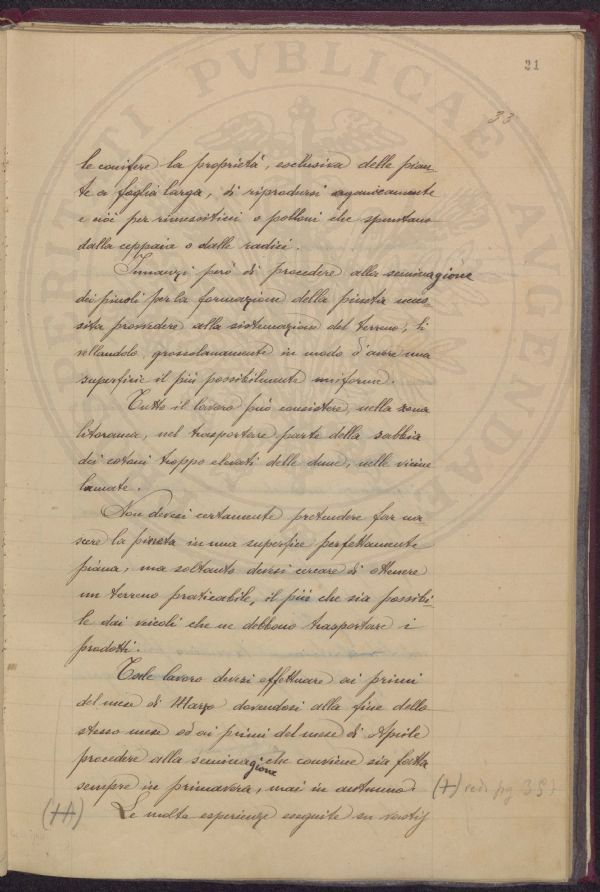 21
33
le conifere la proprietà, esclusiva delle pian-
te a foglia larga, di riprodursi agamicamente
e cioè per rimessiticci o polloni che spuntano
dalla ceppaia o dalle radici.
Innanzi però di procedere alla seminagione
dei pinoli per la formazione della pineta neces
sita provvedere alla sistemazione del terreno, li
vellandolo, grossolanamente in modo d'avere una
superficie il più possibilmente uniforme.
Tutto il lavoro può consistere, nella zona
litoranea, nel trasportare parte della sabbia
dei cotoni troppo elevati delle dune, nelle vicine
lamate.
Non devesi certamente pretendere far na
scere la pineta in una superfice perfettamente
piana, ma soltanto devesi cercare di ottenere
un terreno praticabile, il più che sia possibi-
le dai veicoli che ne debbono trasportare i
prodotti.
Tale lavoro devesi effettuare ai primi
del mese di Marzo dovendosi alla fine dello
stesso mese od ai primi del mese di Aprile
procedere alla seminagione che conviene sia fatta
sempre in primavera, mai in autunno. (+) vedi pag 35)
(++) Le molte esperienze eseguite su vasti
PERITI PVBLICAE AVGENDAE